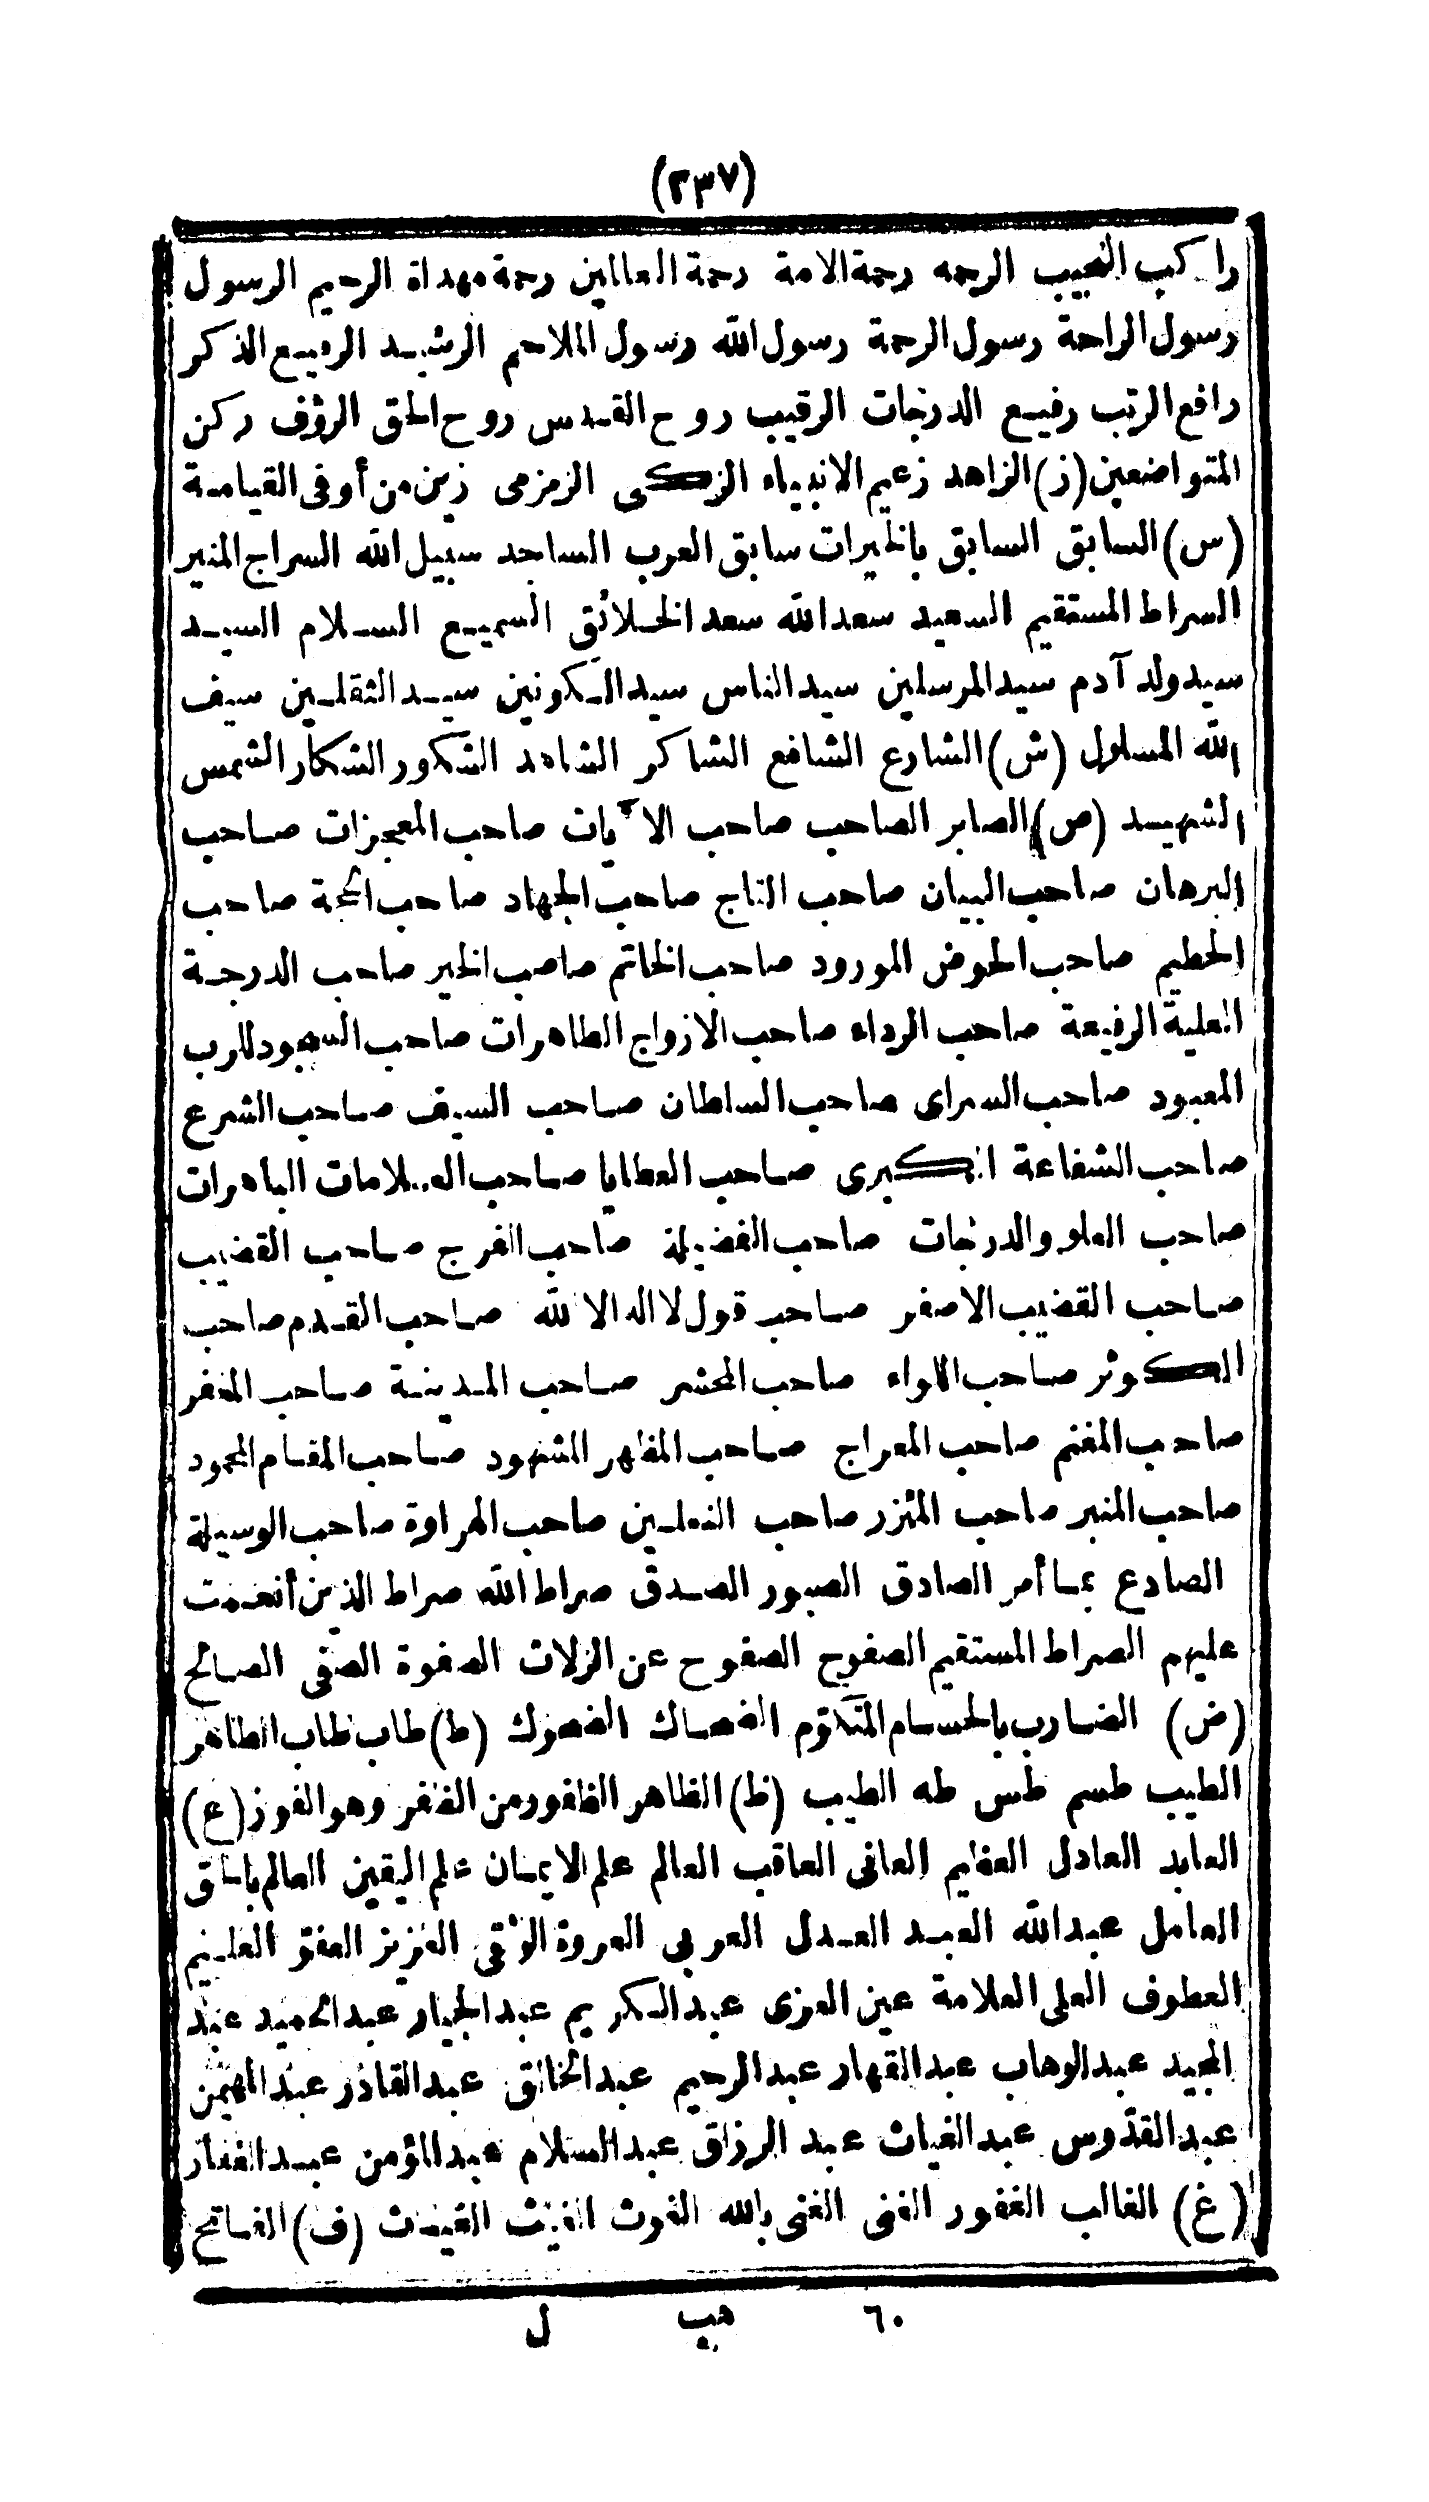 (٢٣٧)
راكب النجيب الرحمه رحمة الامة رحمة العالمين رحمة مهداة الرحيم الرسول
رسول الراحة رسول الرحمة رسول الله رسول الملاحم الرشيد الرفيع الذكر
رافع الرتب رفيع الدرجات الرقيب روح القدس روح الحق الرؤف ركن
المتواضعين (ز) الزاهد زعيم الانبياء الزكى الزمزمى زين من أوفى القيامة
(س) السابق السابق بالخيرات سابق العرب الساجد سبيل الله السراج المنير
السراط المستقيم السعيد سعد الله سعد الخلائق السميع السلام السيد
سيد ولد آدم سيد المرسلين سيد الناس سيد الكونين سيد الثقلين سيف
الله المسلول (ش) الشارع الشافع الشاكر الشاهد الشكور الشكار الشمس
الشهيد (ص) الصابر الصاحب صاحب الآيات صاحب المعجزات صاحب
البرهان صاحب البيان صاحب التاج صاحب الجهاد صاحب الحجة صاحب
الحطيم صاحب الحوض المورود صاحب الخاتم صاحب الخير صاحب الدرجة
العلية الرفيعة صاحب الرداء صاحب الازواج الطاهرات صاحب السجود للرب
المعبود صاحب السراى صاحب السلطان صاحب السيف صاحب الشرع
صاحب الشفاعة الكبرى صاحب العطايا صاحب العلامات الباهرات
صاحب العلو والدرجات صاحب الفضيلة صاحب الفرج صاحب القضيب
صاحب القضيب الاصفر صاحب قول لا اله الا الله صاحب القدم صاحب
الكوثر صاحب اللواء صاحب المحشر صاحب المدينة صاحب المغفر
صاحب المغنم صاحب المعراج صاحب المظهر المشهود صاحب المقام المحمود
صاحب المنبر صاحب المئزر صاحب النعلين صاحب الهراوة صاحب الوسيلة
الصادع بما أمر الصادق الصبور الصدق صراط الله صراط الذين أنعمت
عليهم الصراط المستقيم الصفوح الصفوح عن الزلات الصفوة الصفى الصالح
(ض) الضارب بالحسام المثلوم الضحاك الضحوك (ط) طاب طاب الطاهر
الطيب طسم طس طه الطيب (ظ) الظاهر الظفور من الظفر وهو الفوز (ع)
العابد العادل العظيم العافى العاقب العالم علم الايمان علم اليقين العالم بالحق
العامل عبد الله العبد العدل العربى العروة الوثقى العزيز العفو العليم
العطوف العلى العلامة عين العزى عبد الكريم عبد الجبار عبد الحميد عبد
المجيد عبد الوهاب عبد القهار عبد الرحيم عبد الخالق عبد القادر عبد المهيمن
عبد القدّوس عبد الغياث عبد الرزاق عبد السلام عبد المؤمن عبد الغفار
(غ) الغالب الغفور الغنى الغنى بالله الغوث الغيث الغياث (ف) الفاتح
٦٠ هب ل